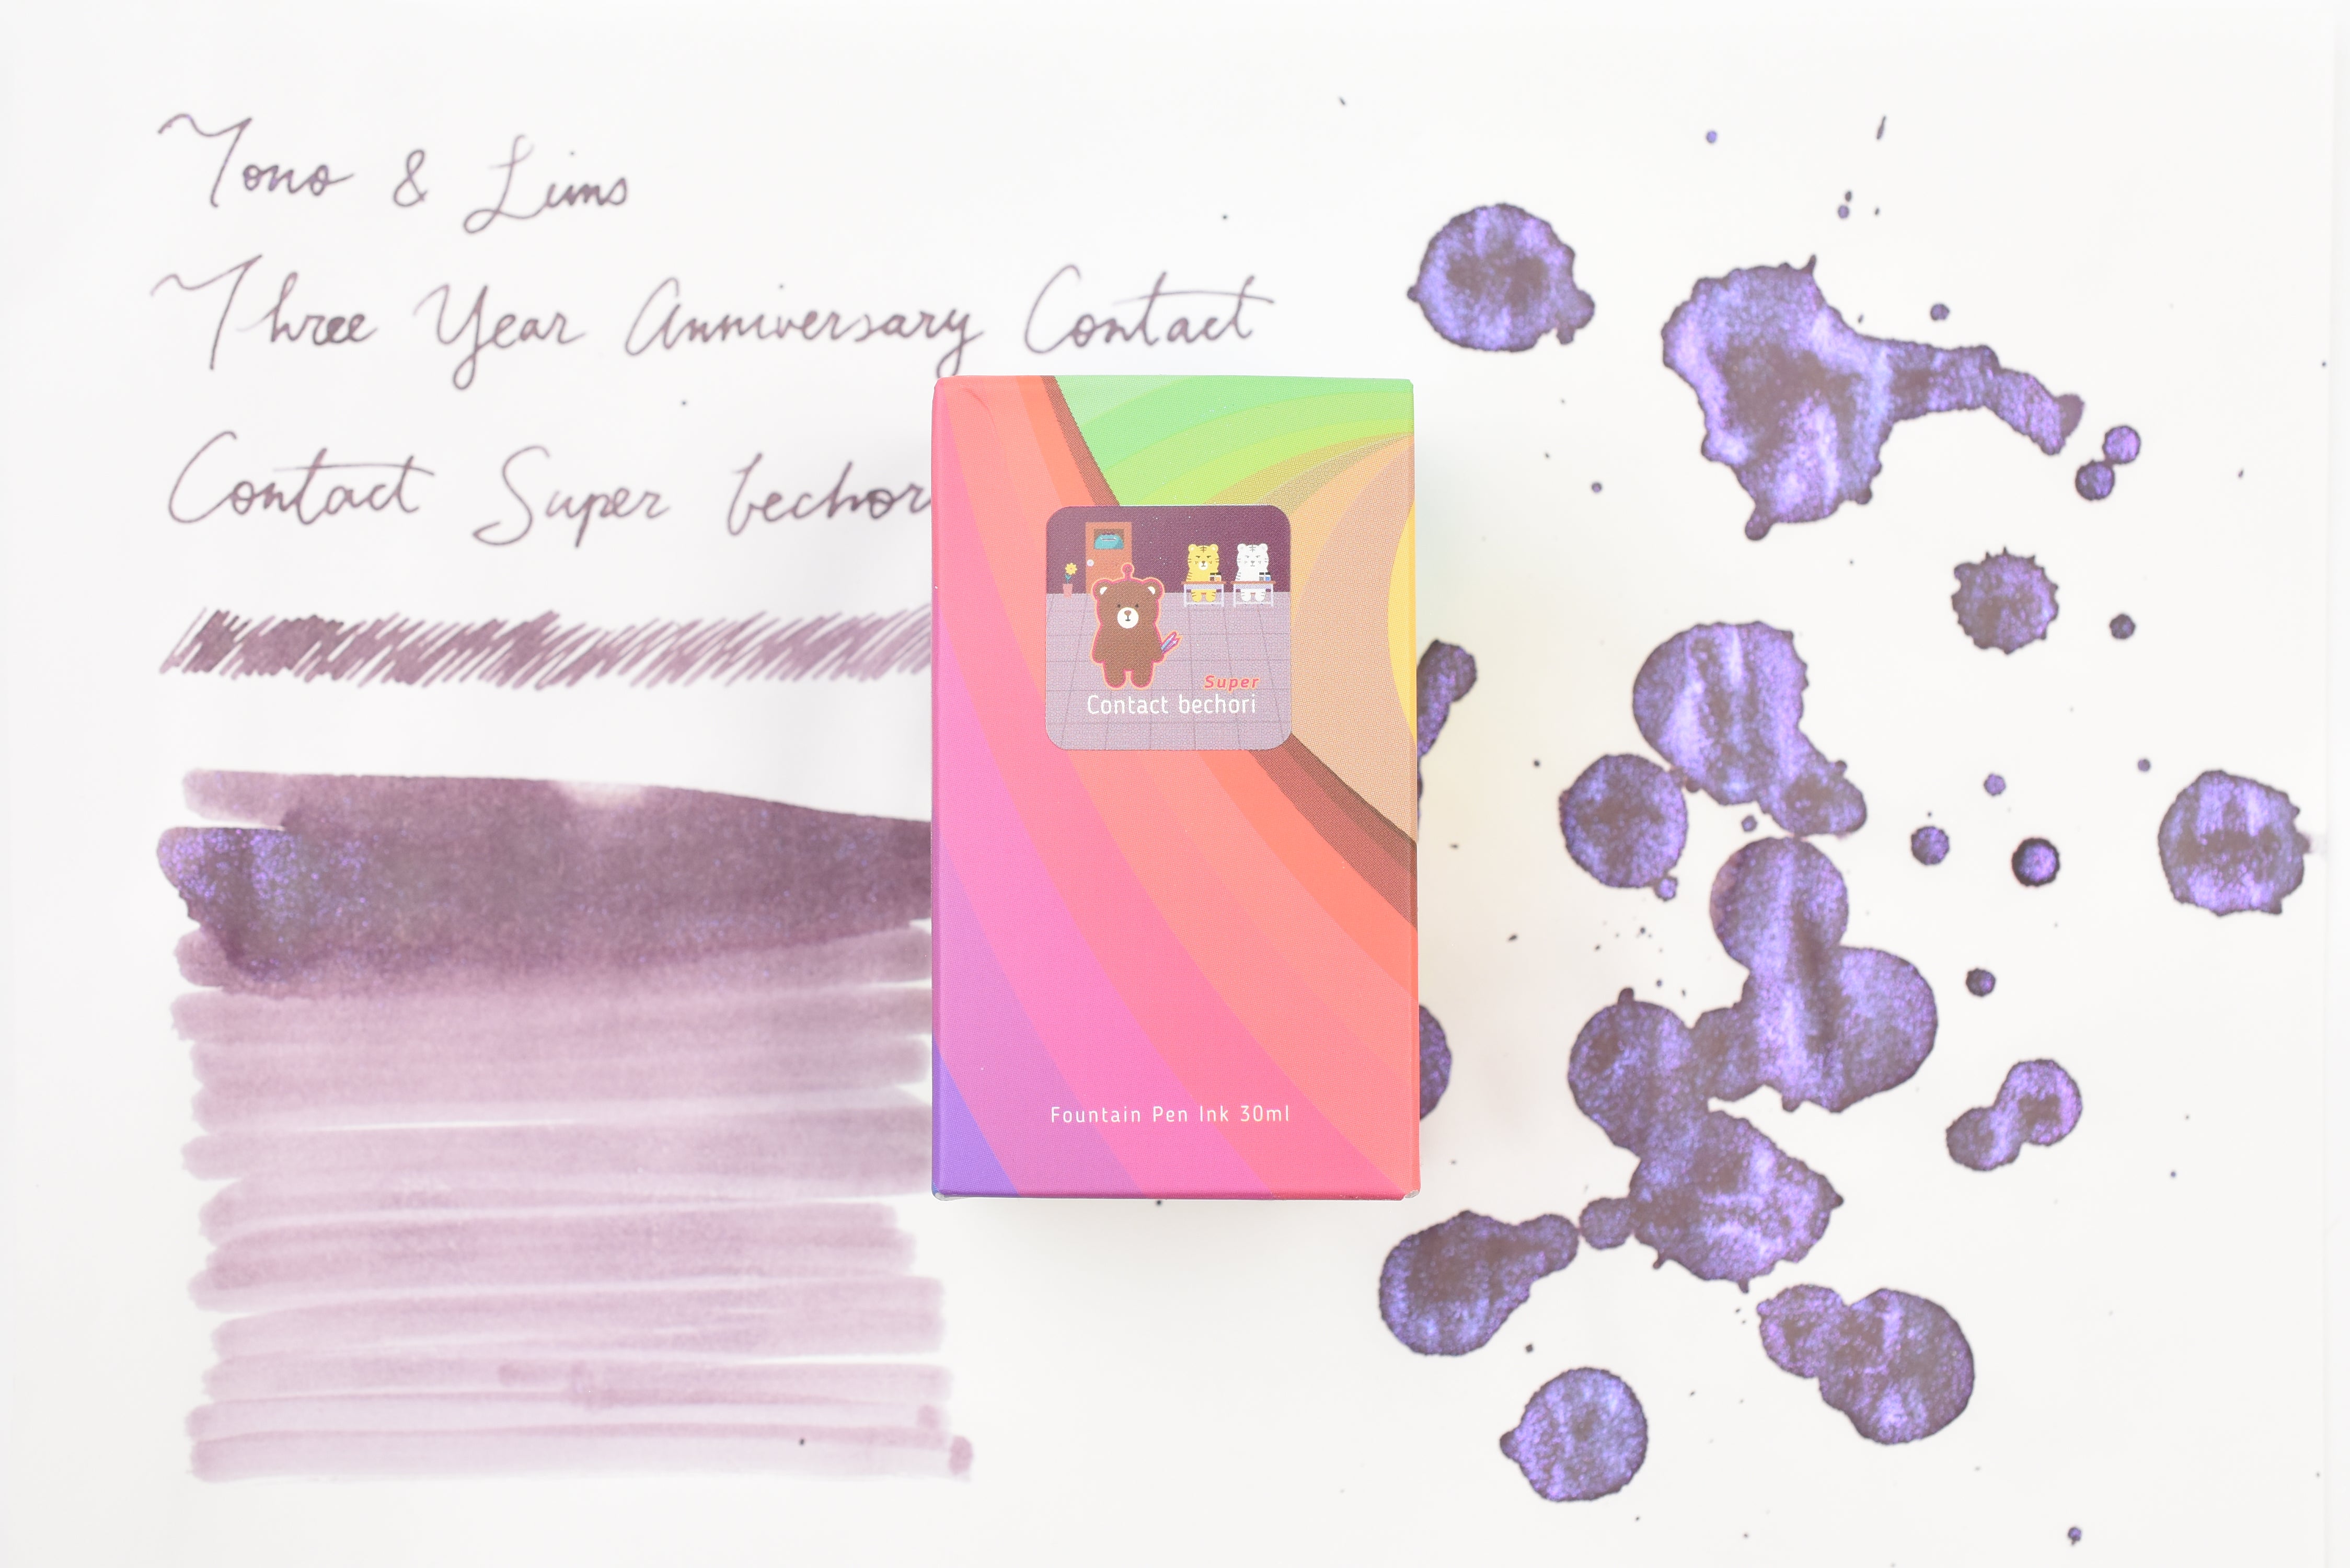 Tono & Lims
Three Year Anniversary Contact
Contact Super bechor
Super
Contact bechori
Fountain Pen Ink 30ml